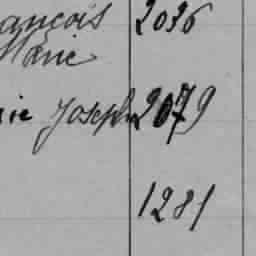 ançois 2036
Marie
ie Joseph 2079
1281